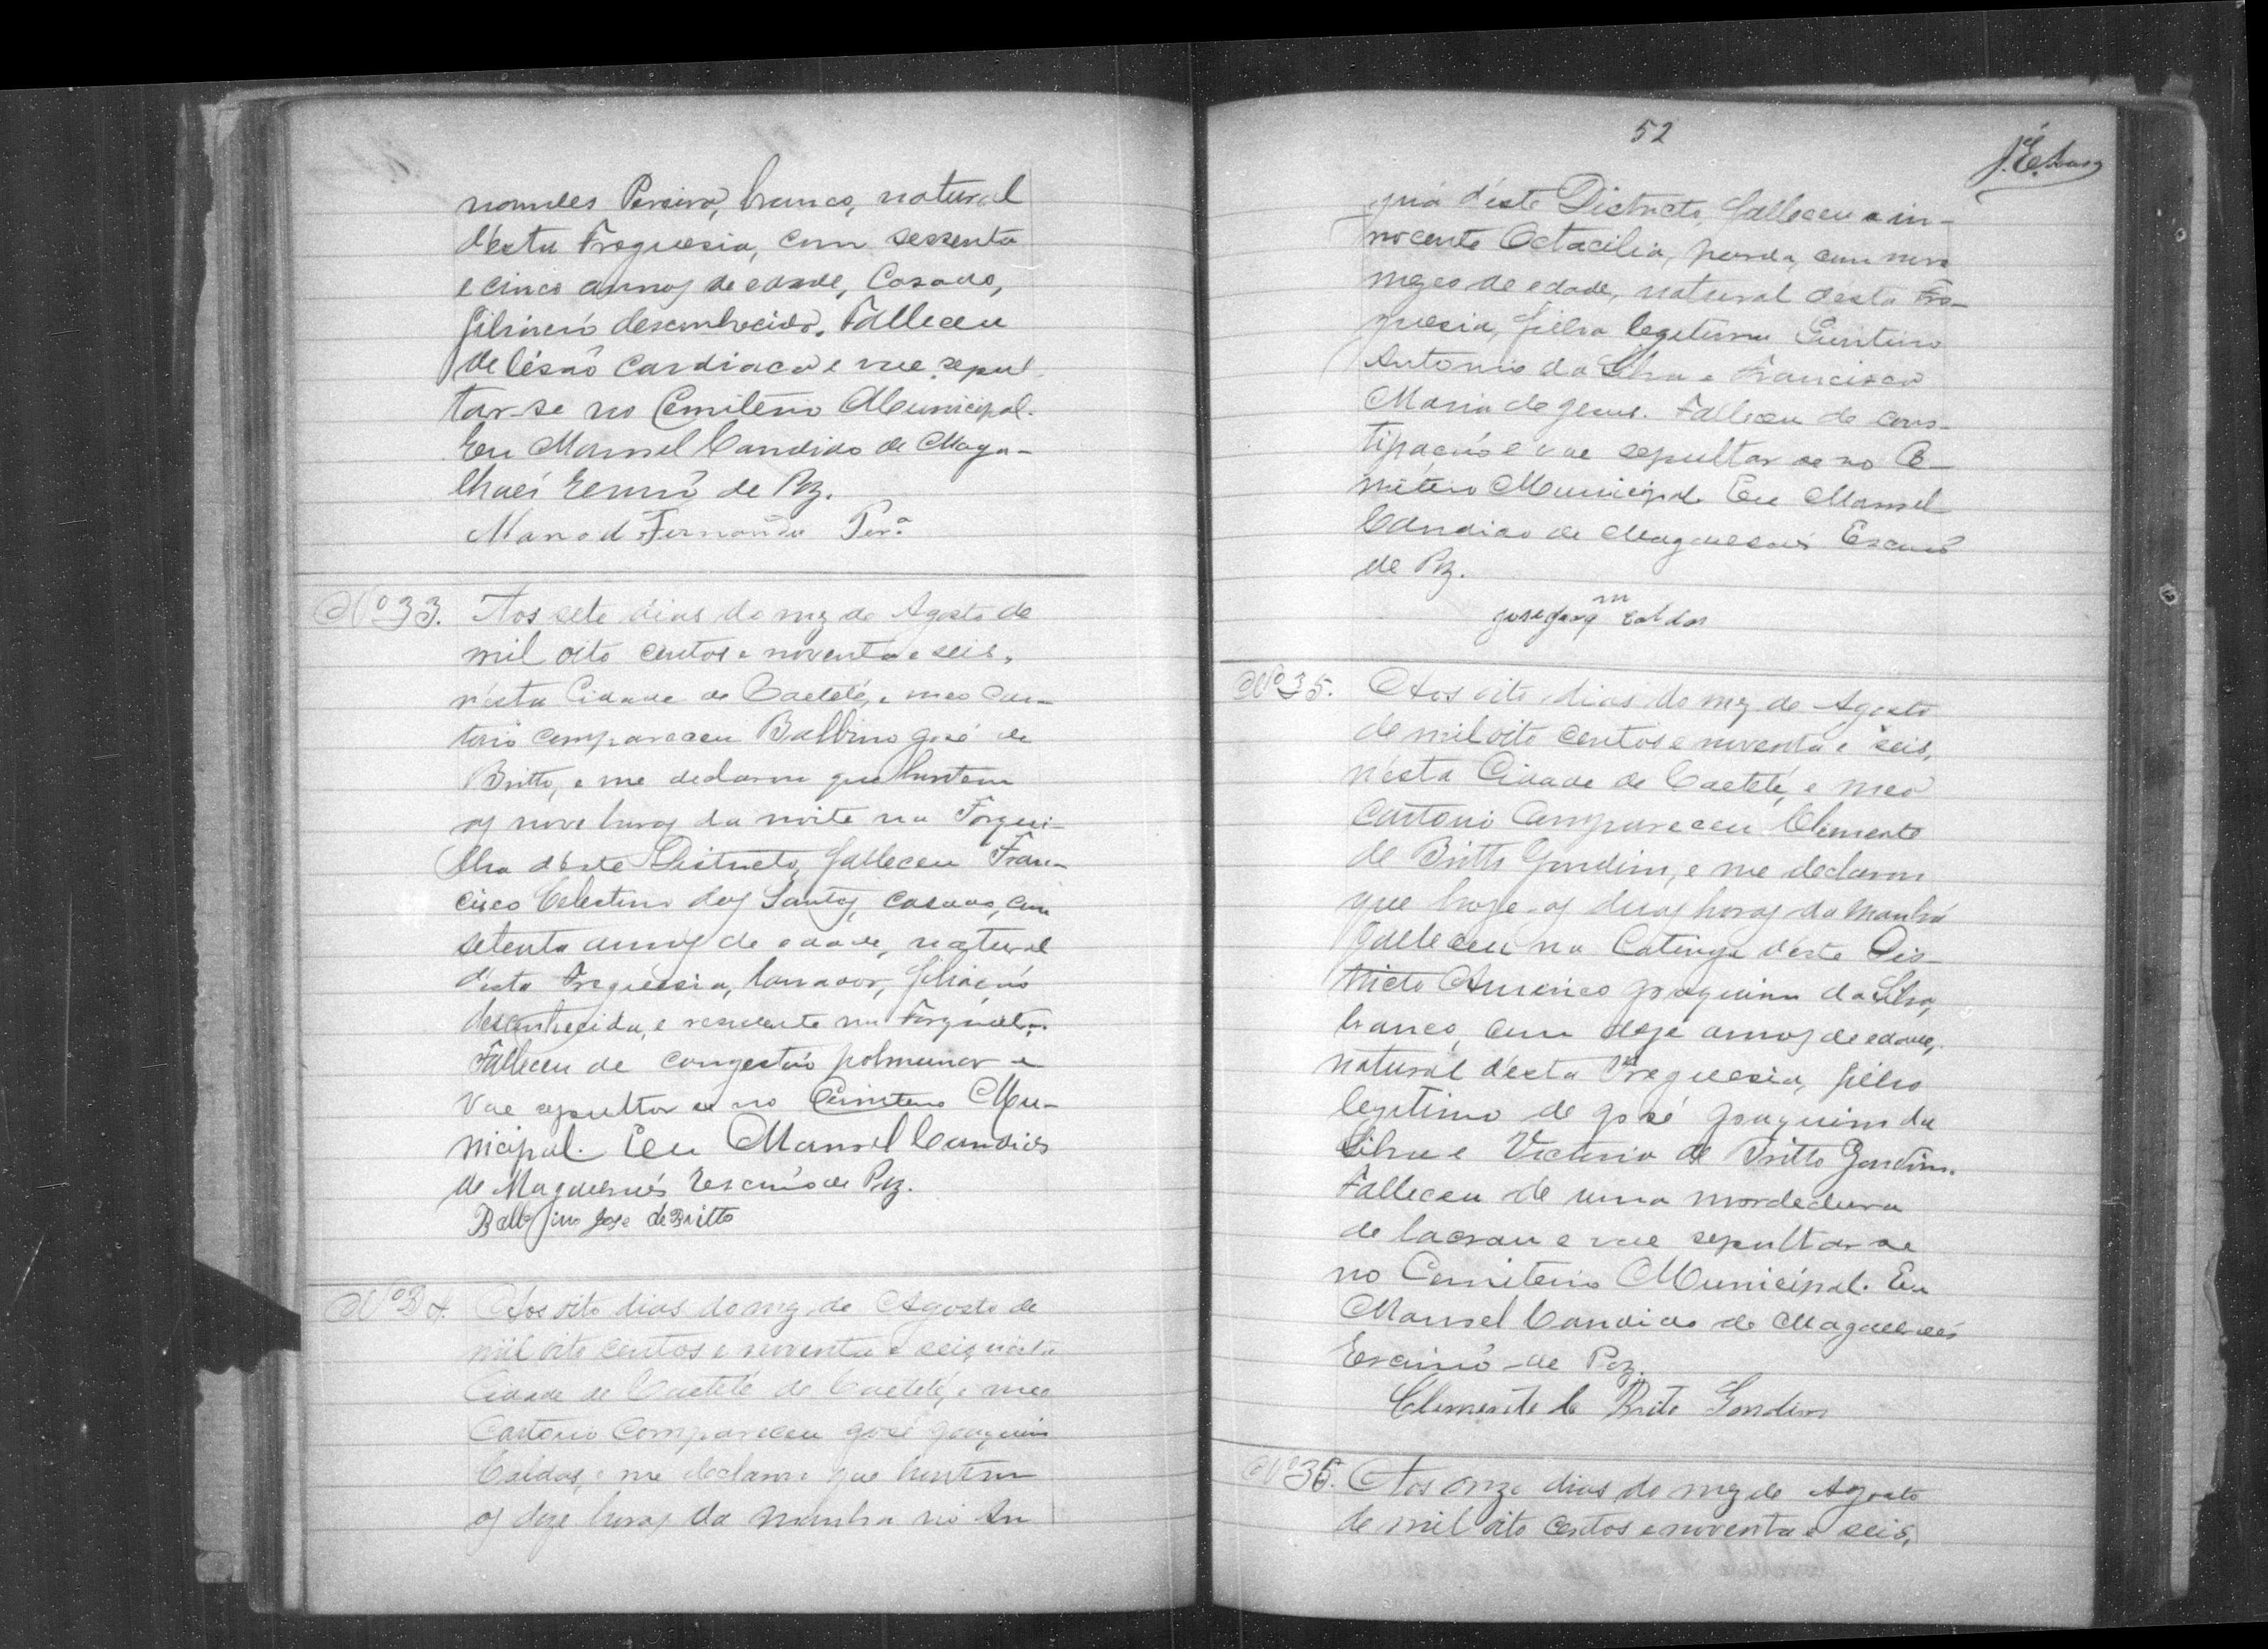 nandes Pereira, branco, natural
d'esta Freguesia, com sessenta
e cinco annos de edade, Casado,
filiação desconhecida. Falleceu
de lesão Cardiaca e vae sepul-
tar-se no Cemiterio Municipal.
Eu Manoel Candido de Maga-
lhães Escrivão de Paz.
Manoel Fernandes Perª
Nº 33. Aos sete dias do mez de Agosto de
mil oito centos e noventa e seis,
n'esta Cidade de Caeteté, e meo Car-
torio compareceu Balbino José de
Britto, e me declarou que hontem
as nove horas da noite na Forqui-
lha d'este Districto, falleceu Fran-
cisco Celestino dos Santos, casado, com
setenta annos de edade, natural
d'esta Freguesia, lavrador, filiação
desconhecida, e residente na
Falleceu de congestão polmunar e
vae sepultar se no Cemiterio Mu-
nicipal. Eu Manoel Candido
de Magalhães Escrivão de Paz.
Balbino Jose de Britto
Nº 34. Aos oito dias do mez de Agosto de
mil oito centos e noventa e seis n'esta
Cidade de Caeteté de Caeteté, e meo
Cartorio Compareceu José Joaquim
Caldas, e me declarou que hontem
as doze horas da manhã no
52
guá d'este Districto, falleceu a in-
nocente Octacilia, parda, com nove
mezes de edade, natural d'esta Fre-
guesia, filha legitima
Antonio da Silva e Francisca
Maria de Jesus. Falleceu de cons-
tipação e vae sepultar se no Ce-
miterio Municipal. Eu Manoel
Candido de Magalhães Escrivão
de Paz.
Jose Joaqm Caldas
Nº 35. Aos oito dias do mez de Agosto
de mil oito centos e noventa e seis,
n'esta Cidade de Caeteté, e meo
Cartorio Compareceu Clemente
de Britto Gondim, e me declarou
que hoje as duas horas da manhã
falleceu na Catinga d'este Dis-
tricto Americo Joaquim da Silva,
branco, com doze annos de edade,
natural d'esta Freguesia, filho
legitimo de José Joaquim da
Silva e Victoria de Britto Gondim.
Falleceu de uma mordedura
de lacrau e vae sepultar se
no Cemiterio Municipal. Eu
Manoel Candido de Magalhães
Escrivão de Paz.
Clemente de Brito Gondim
Nº 36. Aos onze dias do mez de Agosto
de mil oito centos e noventa e seis,